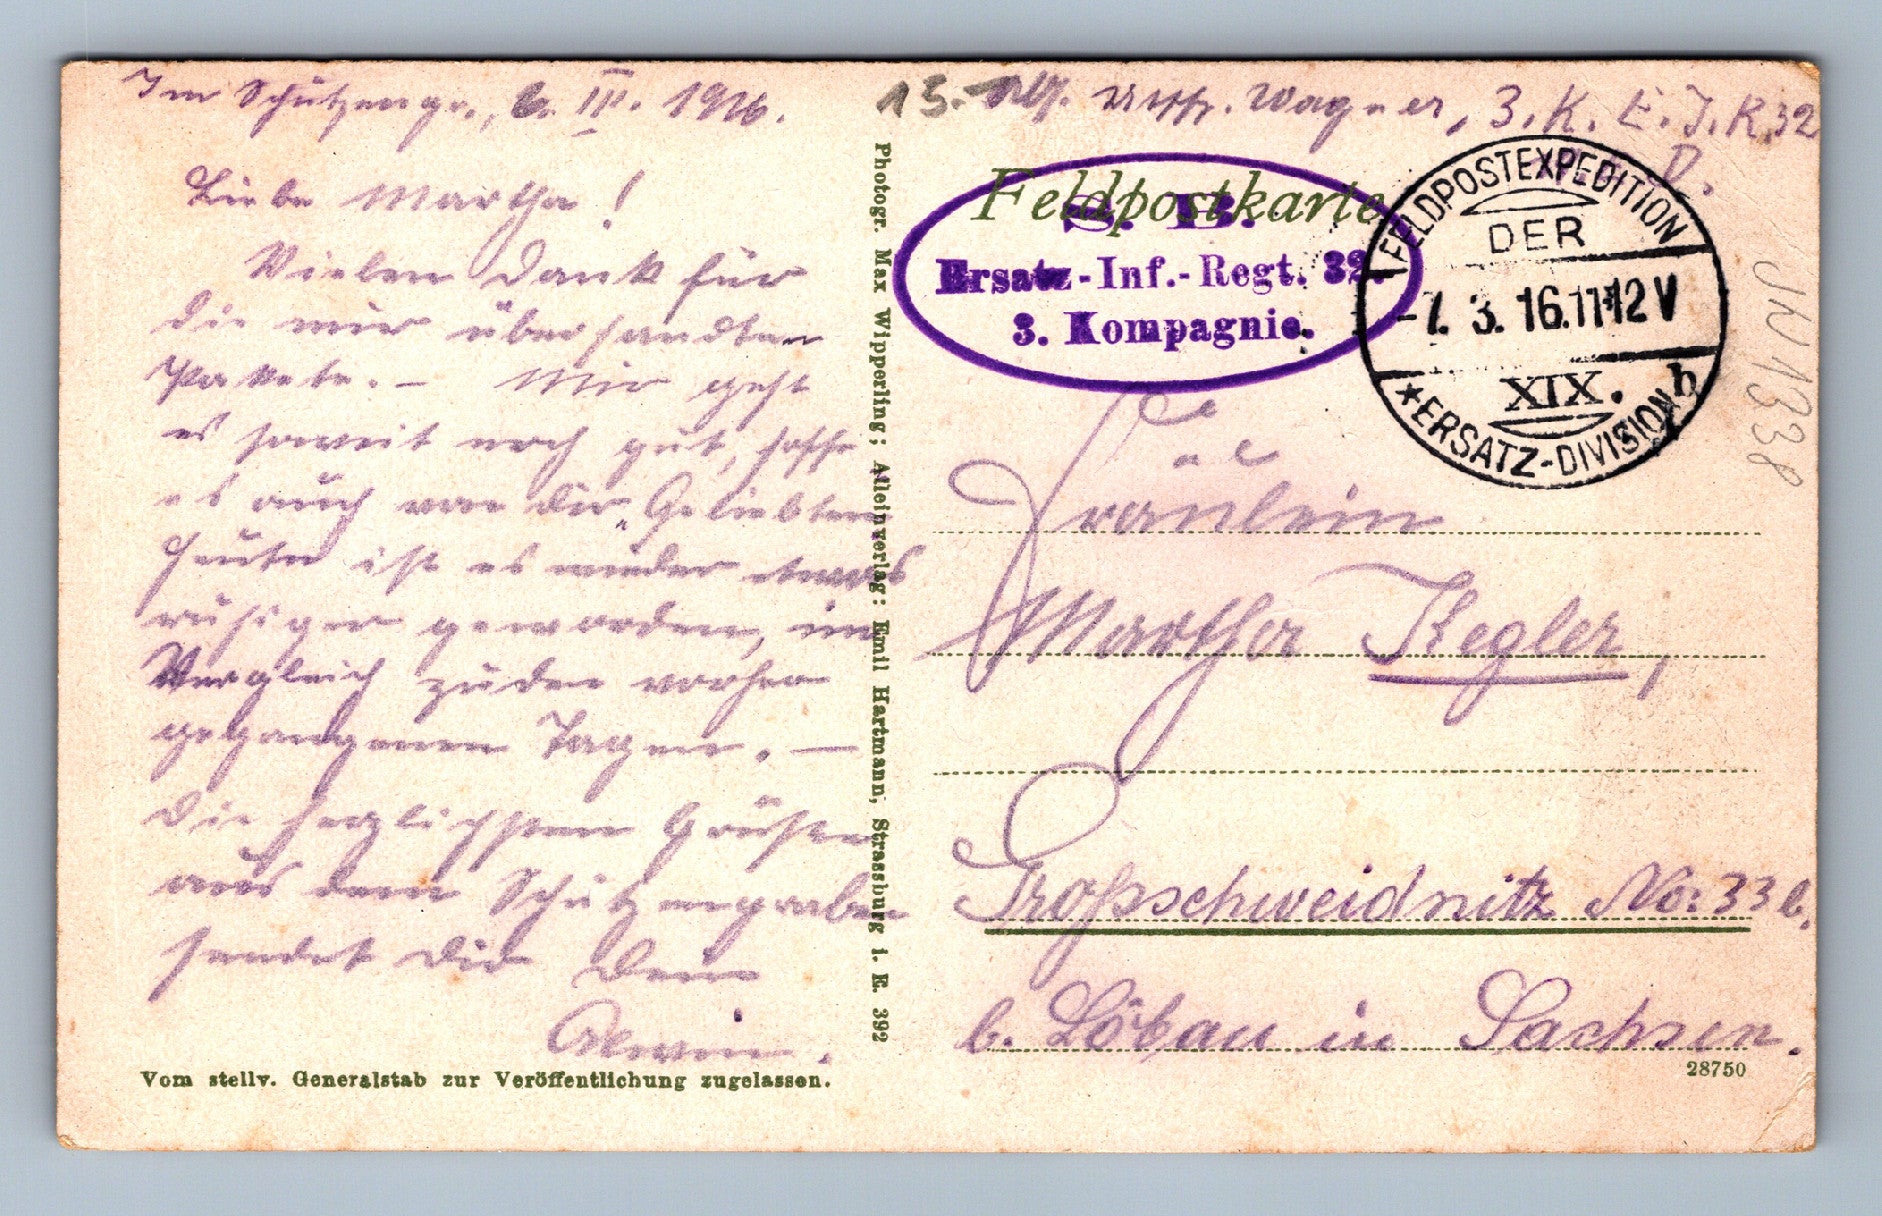 Im Schützengr., 6. III. 1916.
Liebe Martha!
Vielen Dank für
die mir übersandten
Pakete. – Mir geht
es soweit noch gut, hoffe
es auch von dir, Geliebten
Heute ist es wieder etwas
ruhiger geworden, im
Vergleich zu den vorher
gegangenen Tagen. –
Die herzlichsten Grüße
aus dem Schützengraben
sendet Dir Dein
Alwin.
Vom stellv. Generalstab zur Veröffentlichung zugelassen.
Photogr. Max Wipperling; Alleinverlag: Emil Hartmann, Strassburg i. E. 392
Uffz. Wagner, 3. K. E. I. R. 32
D.
Feldpostkarte
S. B.
Ersatz-Inf.-Regt. 32.
3. Kompagnie.
FELDPOSTEXPEDITION
DER
-7. 3. 16. 11-12 V
XIX.
* ERSATZ-DIVISION b
Fräulein
Martha Kegler,
Großschweidnitz No: 33 b.
b. Löbau in Sachsen.
28750